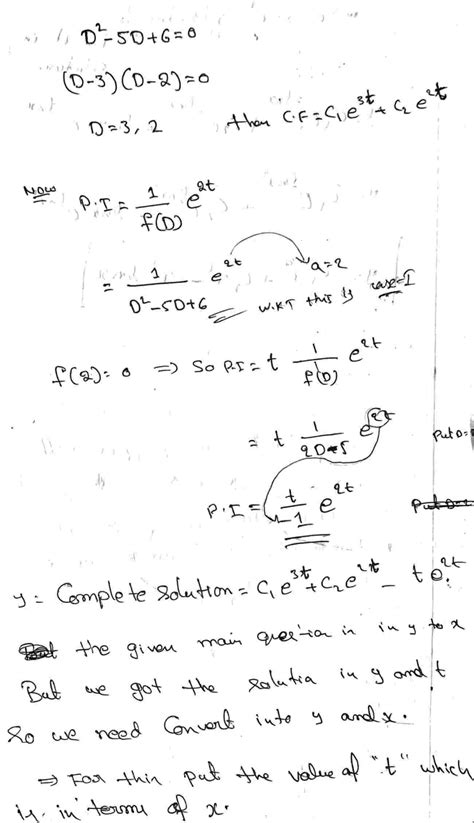 D²-5D+6=0
(D-3)(D-2)=0
D=3, 2 then C.F=C₁e^{3t}+C₂e^{2t}
Now P.I = 1/f(D) e^{2t}
= 1/(D²-5D+6) e^{2t} a=2
W.K.T this is case-I
f(2)=0 ⇒ So P.I = t 1/f'(D) e^{2t}
= t 1/(2D-5) e^{2t} Put D=
P.I = t/-1 e^{2t}
y = Complete solution = C₁e^{3t}+C₂e^{2t} - t e^{2t}.
the given main question is in y to x
But we got the solutia in y and t
So we need Convert into y and x.
⇒ For this put the value of "t" which
is in terms of x.